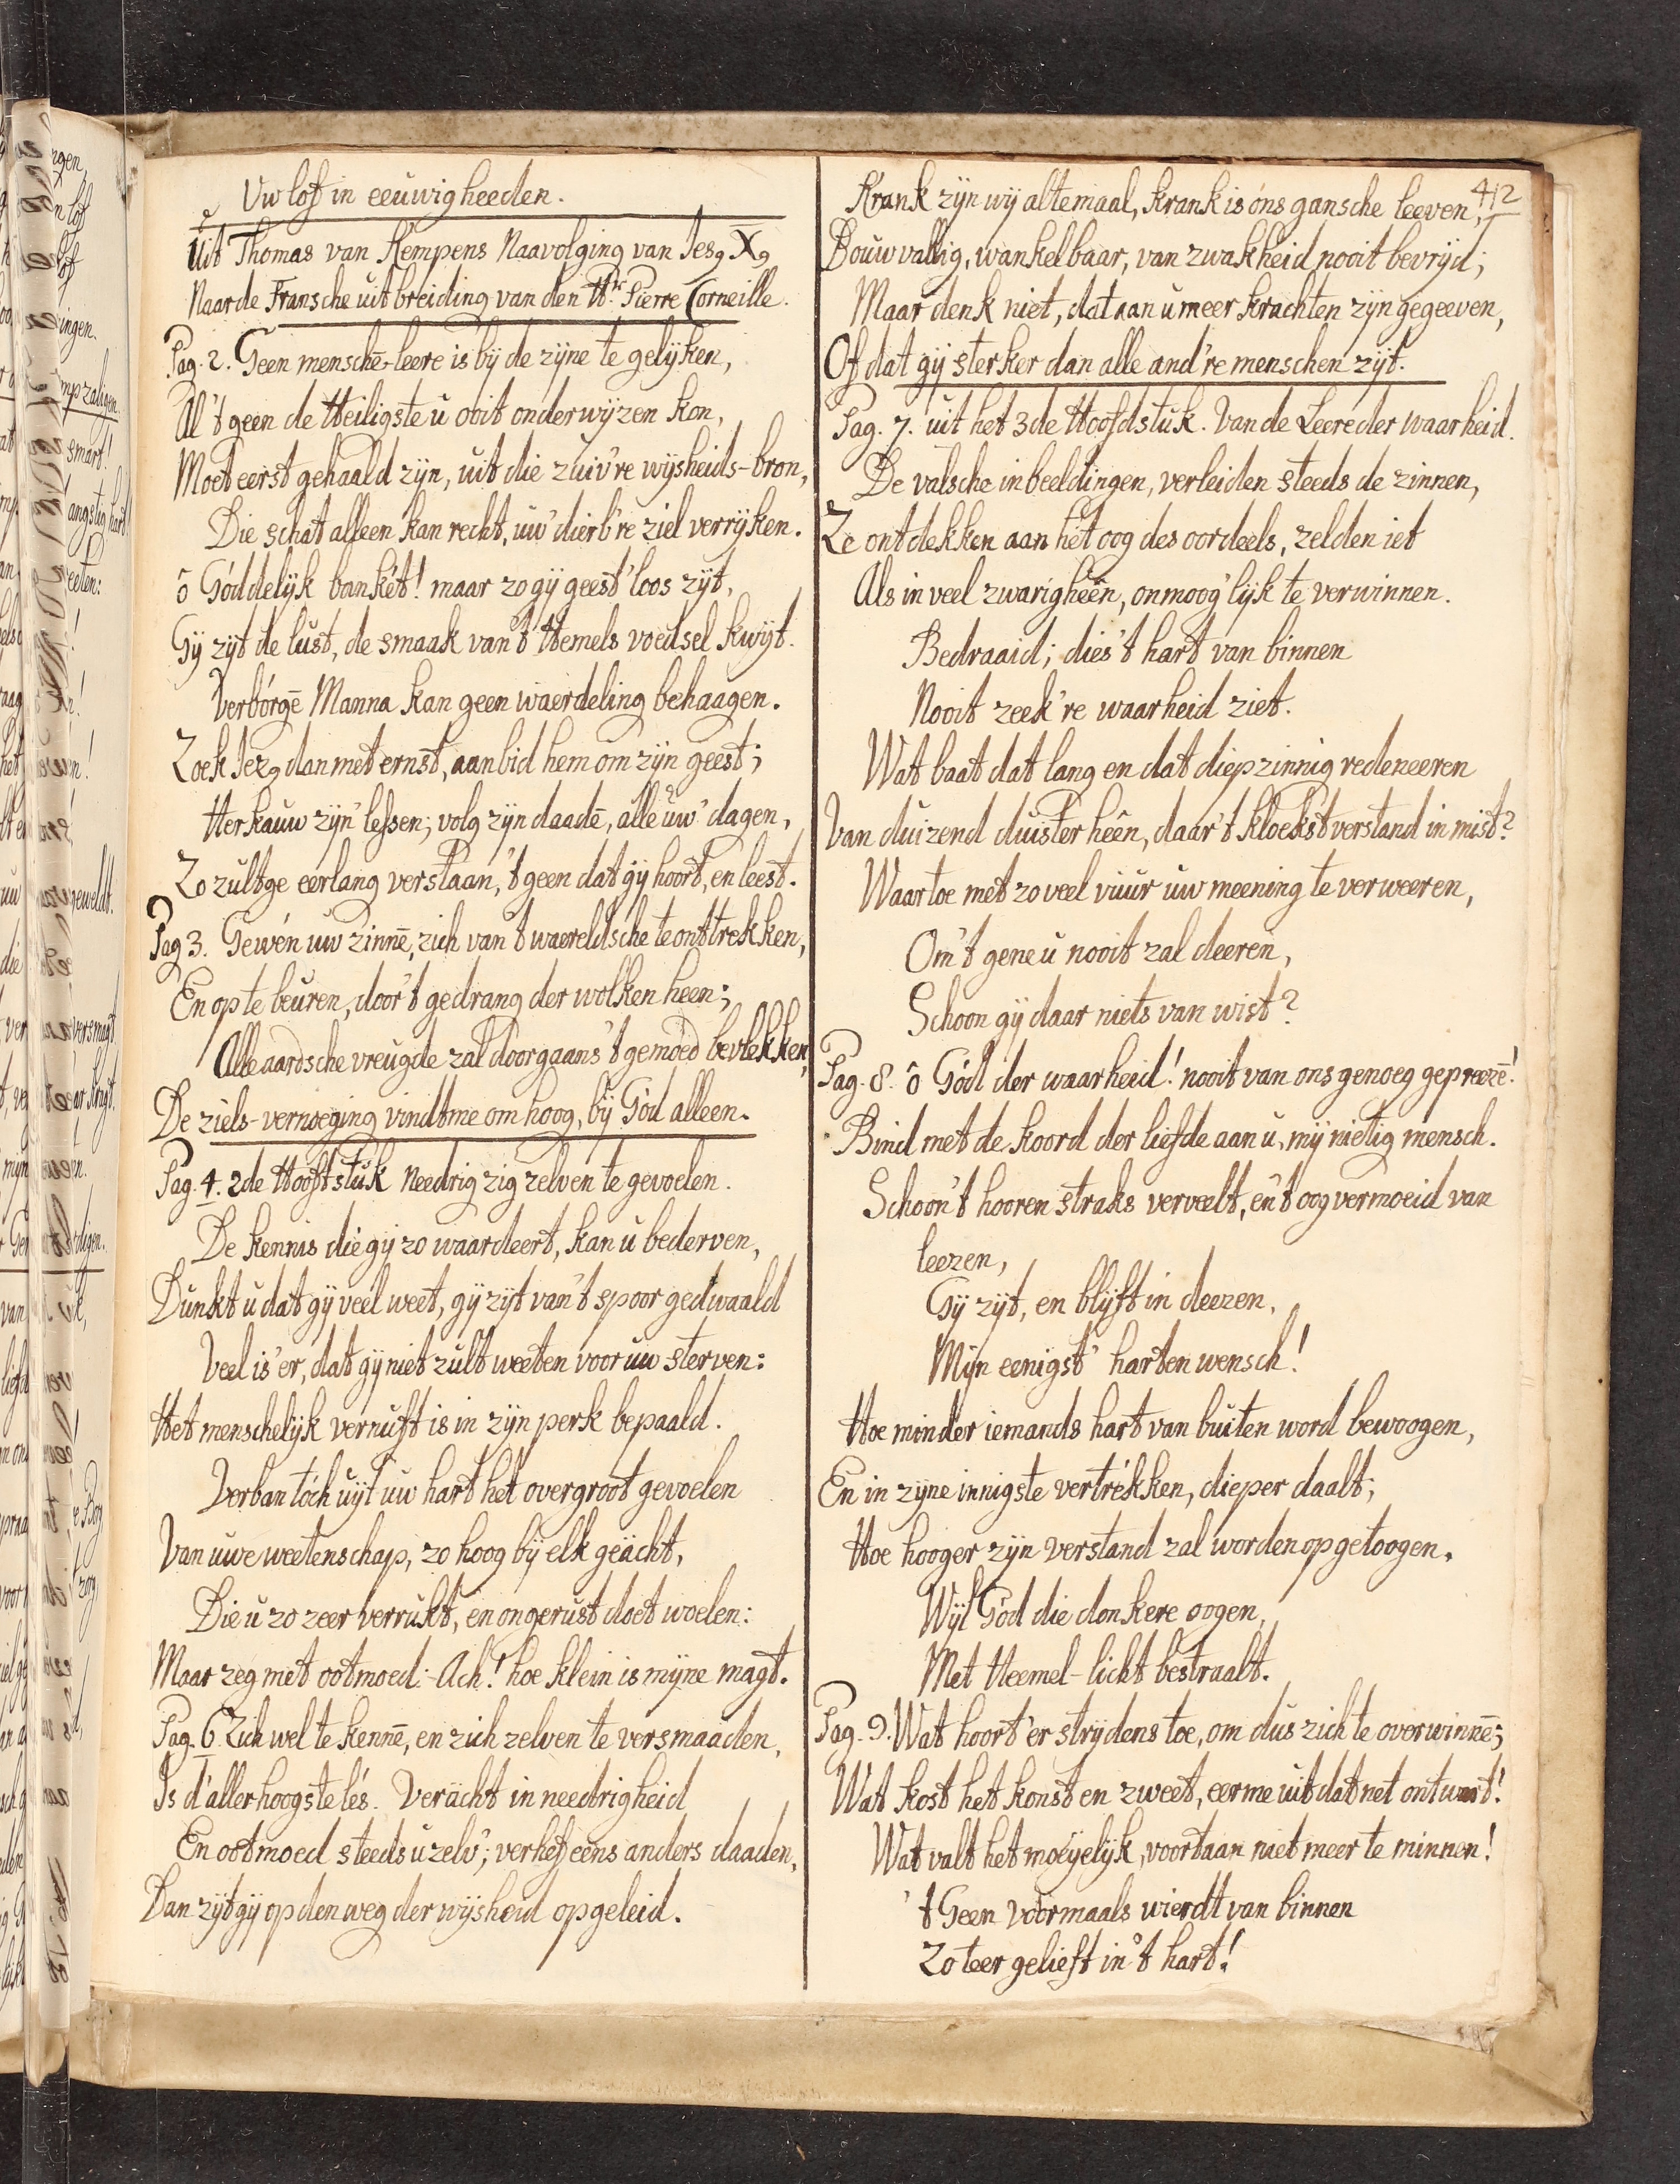 Uw lof in eeuwigheeden.
Uit Thomas van Kempens Naavolging van Jes9 X9
Naar de Fransche uitbreiding van den Hr. Pierre Corneille.
Pag. 2. Geen menschē-leere is bij de zijne te gelijken,
Al 't geen de Heiligste u ooit onderwijzen kon,
Moet eerst gehaald zijn, uit die zuiv're wijsheids-bron,
Die schat alleen kan recht, uw' dierb're ziel verrijken.
ô Góddelijk bankét! maar zo gij geest'loos zijt,
Gij zijt de lust, de smaak van 't Hemels voedsel kwijt.
Verbórgē Manna kan geen waerdeling behaagen.
Zoek Jez9 dan met ernst, aanbid hem om zijn geest;
Herkauw zijn' lessen; volg zijn daadē, alle uw' dagen,
Zo zultge eerlang verstaan, 't geen dat gij hoort, en leest.
Pag 3. Gewén uw zinnē, zich van 't waereldsche te onttrekken,
En op te beuren, door 't gedrang der wolken heen;
Alle aardsche vreugde zal doorgaans 't gemóed bevlekken,
De ziels-vernoeging vindtme om hoog, bij Gód alleen.
Pag. 4. 2de Hooftstuk Needrig zig zelven te gevoelen.
De kennis die gij zo waardeert, kan u bederven,
Dunkt u dat gij veel weet, gij zijt van 't spoor gedwaald
Veel is 'er, dat gij niet zult weeten voor uw sterven:
Het menschelijk vernuft is in zijn perk bepaald.
Verban tóch uijt uw hart het overgroot gevoelen
Van uwe weetenschap, zo hoog bij elk geächt,
Die u zo zeer verrukt, en ongerust doet woelen:
Maar zeg met ootmoed:-Ach! hoe klein is mijne magt.
Pag. 6 Zich wel te kennē, en zich zelven te versmaaden,
Is d'allerhoogste lés. Verächt in needrigheid
En ootmoed steeds uzelv'; verhef eens anders daaden,
Dan zijt gij op den weg der wijsheid opgeleid.
412
Krank zijn wij altemaal, krank is óns gansche leeven,
Bouwvallig, wankelbaar, van zwakheid nooit bevrijd;
Maar denk niet, dat aan u meer krachten zijn gegeeven,
Of dat gij sterker dan alle and're menschen zijt.
Pag. 7. uit het 3de Hoofdstuk. Van de Leere der waarheid.
De valsche inbeeldingen, verleiden steeds de zinnen,
Ze ontdekken aan het oog des oordeels, zelden iet
Als in veel zwarigheên, onmoog'lijk te verwinnen.
Bedraaid; dies 't hart van binnen
Nooit zeek're waarheid ziet.
Wat baat dat lang en dat diepzinnig redeneeren
Van duizend duisterheên, daar 't kloekst verstand in mist?
Waartoe met zo veel vuur uw meening te verweeren,
Om 't gene u nooit zal deeren,
Schoon gij daar niets van wist?
Pag. 8. ô Gód der waarheid! nooit van ons genoeg gepreezē!
Bind met de koord der liefde aan u, mij nietig mensch.
Schoon 't hooren straks verveelt, en 't oog vermoeid van
leezen,
Gij zijt, en blijft in deezen,
Mijn eenigst' harten wensch!
Hoe minder iemands hart van buiten word bewoogen,
En in zijne innigste vertrékken, dieper daalt;
Hoe hooger zijn verstand zal worden opgetoogen,
Wijl Gód die donkere oogen,
Met Heemel-licht bestraalt.
Pag. 9. Wat hoort 'er strijdens toe, om dus zich te overwinnē;
Wat kost het konst en zweet, eer me uit dat net ontwart!
Wat valt het moeijelijk, voortaan niet meer te minnen!
't Geen voormaals wierdt van binnen
Zo teer gelieft in 't hart!